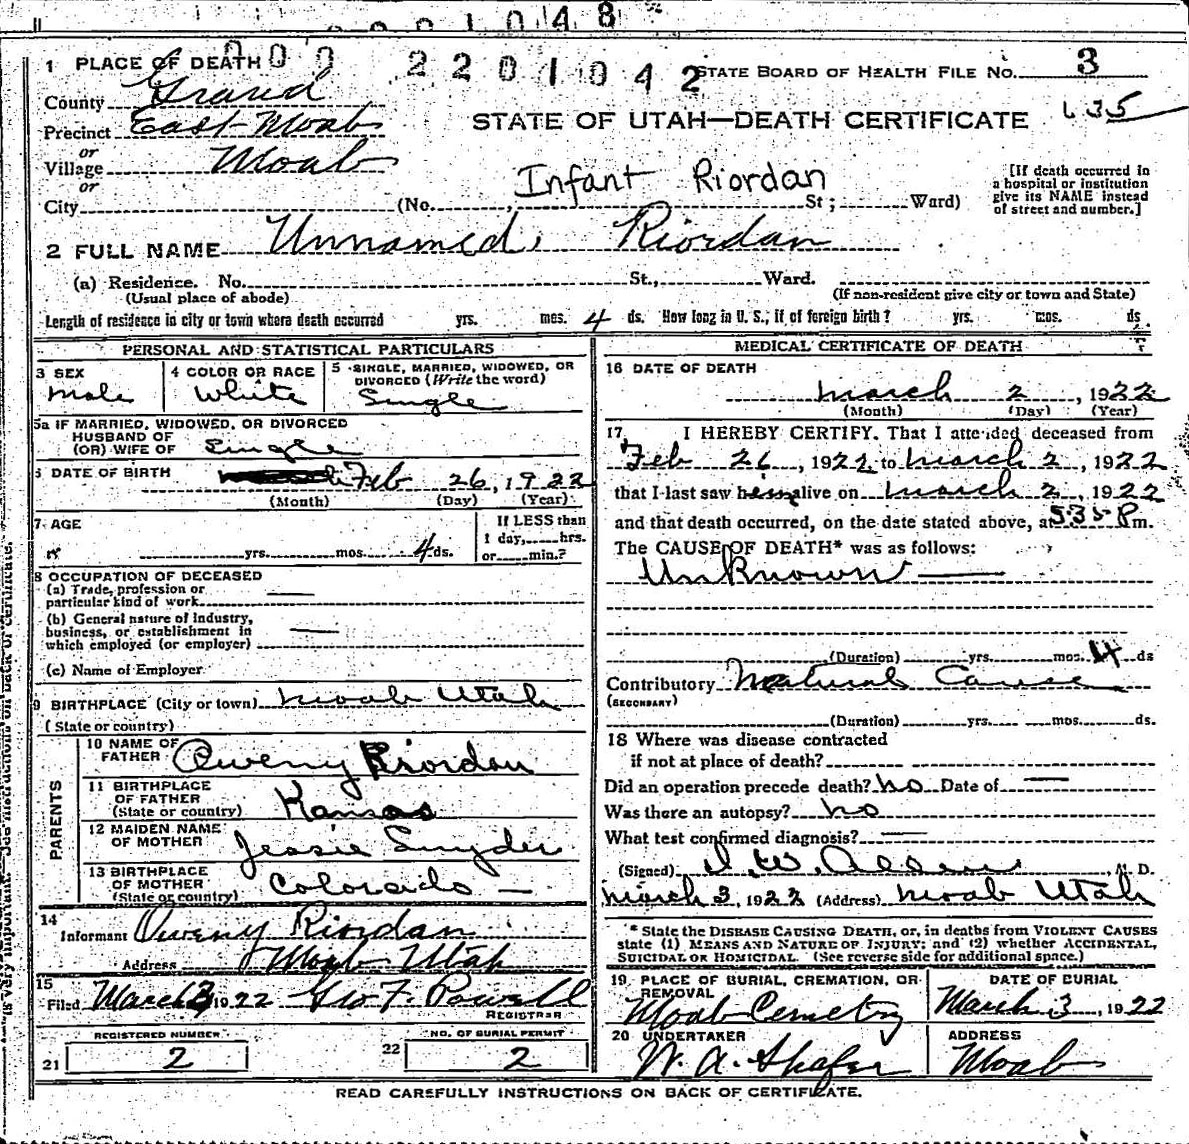 0001048
000 2201042
1 PLACE OF DEATH
STATE BOARD OF HEALTH FILE NO. 3
County Grand
Precinct East Moab
STATE OF UTAH—DEATH CERTIFICATE 635
or
Village Moab
or
Infant Riordan
City (No. St; Ward)
[If death occurred in
a hospital or institution
give its NAME instead
of street and number.]
2 FULL NAME Unnamed, Riordan
(a) Residence. No. St., Ward.
(Usual place of abode) (If non-resident give city or town and State)
Length of residence in city or town where death occurred yrs. mos. 4 ds. How long in U. S., if of foreign birth? yrs. mos. ds.
PERSONAL AND STATISTICAL PARTICULARS
3 SEX
Male
4 COLOR OR RACE
White
5 SINGLE, MARRIED, WIDOWED, OR
DIVORCED (Write the word)
Single
5a IF MARRIED, WIDOWED, OR DIVORCED
HUSBAND OF
(OR) WIFE OF Single
6 DATE OF BIRTH Feb 26, 1922
(Month) (Day) (Year)
7 AGE
yrs. mos. 4 ds.
If LESS than
1 day, hrs.
or min.?
8 OCCUPATION OF DECEASED
(a) Trade, profession or
particular kind of work —
(b) General nature of industry,
business, or establishment in
which employed (or employer) —
(c) Name of Employer
9 BIRTHPLACE (City or town) Moab Utah
(State or country)
PARENTS
10 NAME OF
FATHER Oweny Riordan
11 BIRTHPLACE
OF FATHER
(State or country) Kansas
12 MAIDEN NAME
OF MOTHER Jessie Snyder
13 BIRTHPLACE
OF MOTHER
(State or country) Colorado —
14
Informant Oweny Riordan
Address Moab Utah
15
Filed March 3 1922 Geo F. Powell
REGISTRAR
REGISTERED NUMBER
21 2
NO. OF BURIAL PERMIT
22 2
MEDICAL CERTIFICATE OF DEATH
16 DATE OF DEATH
March 2, 1922
(Month) (Day) (Year)
17 I HEREBY CERTIFY. That I attended deceased from
Feb 26, 1922 to March 2, 1922
that I last saw him alive on March 2, 1922
and that death occurred, on the date stated above, at 535 P m.
The CAUSE OF DEATH* was as follows:
Unknown —
(Duration) yrs. mos. 4 ds
Contributory Natural Cause
(SECONDARY)
(Duration) yrs. mos. ds.
18 Where was disease contracted
if not at place of death?
Did an operation precede death? no Date of —
Was there an autopsy? no
What test confirmed diagnosis? —
(Signed) I. W. Allen, M. D.
March 3, 1922 (Address) Moab Utah
* State the DISEASE CAUSING DEATH, or, in deaths from VIOLENT CAUSES
state (1) MEANS AND NATURE OF INJURY: and (2) whether ACCIDENTAL,
SUICIDAL OR HOMICIDAL. (See reverse side for additional space.)
19 PLACE OF BURIAL, CREMATION, OR
REMOVAL
Moab Cemetry
DATE OF BURIAL
March 3, 1922
20 UNDERTAKER
W. A. Shafer
ADDRESS
Moab
READ CAREFULLY INSTRUCTIONS ON BACK OF CERTIFICATE.